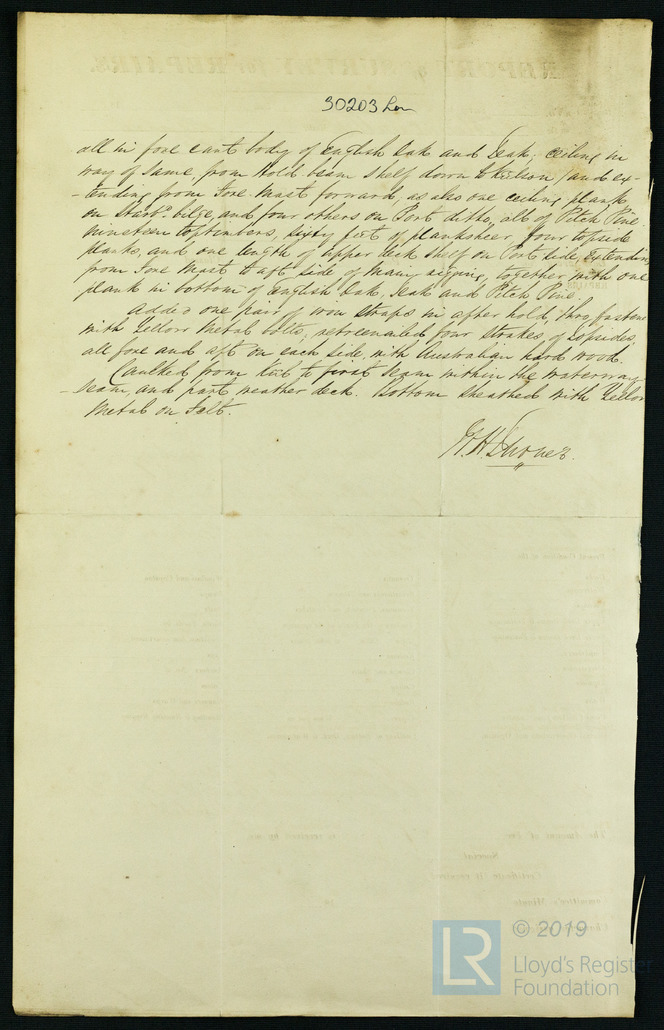 30203 Lon
all in fore cant body of English Oak and Teak; ceiling in
way of same, from Hold beam Shelf down to Keelson (and ex-
-tending from Fore Mast forward, as also one ceiling plank
on Starbd bilge, and four others on Port ditto, all of Pitch Pine
nineteen toptimbers, sixty feet of planksheer, four topside
planks, and one length of upper deck shelf on Port side, extending
from Fore Mast to aft side of Main rigging, together with one
plank in bottom of English Oak, Teak and Pitch Pine.
Added one pair of iron straps in after hold, thro' fastened
with Yellow Metal bolts; retreenailed four strakes of topsides,
all fore and aft on each side, with Australian hard wood.
Caulked from to first seam within the waterway
seam, and part weather deck. Bottom Sheathed with Yellow
Metal on Felt.
REPORT of SURVEY for REPAIRS.
The Amount of Fee
Special
Certificate if required
Committee's Minute
18
© 2019
LR
Lloyd's Register
Foundation